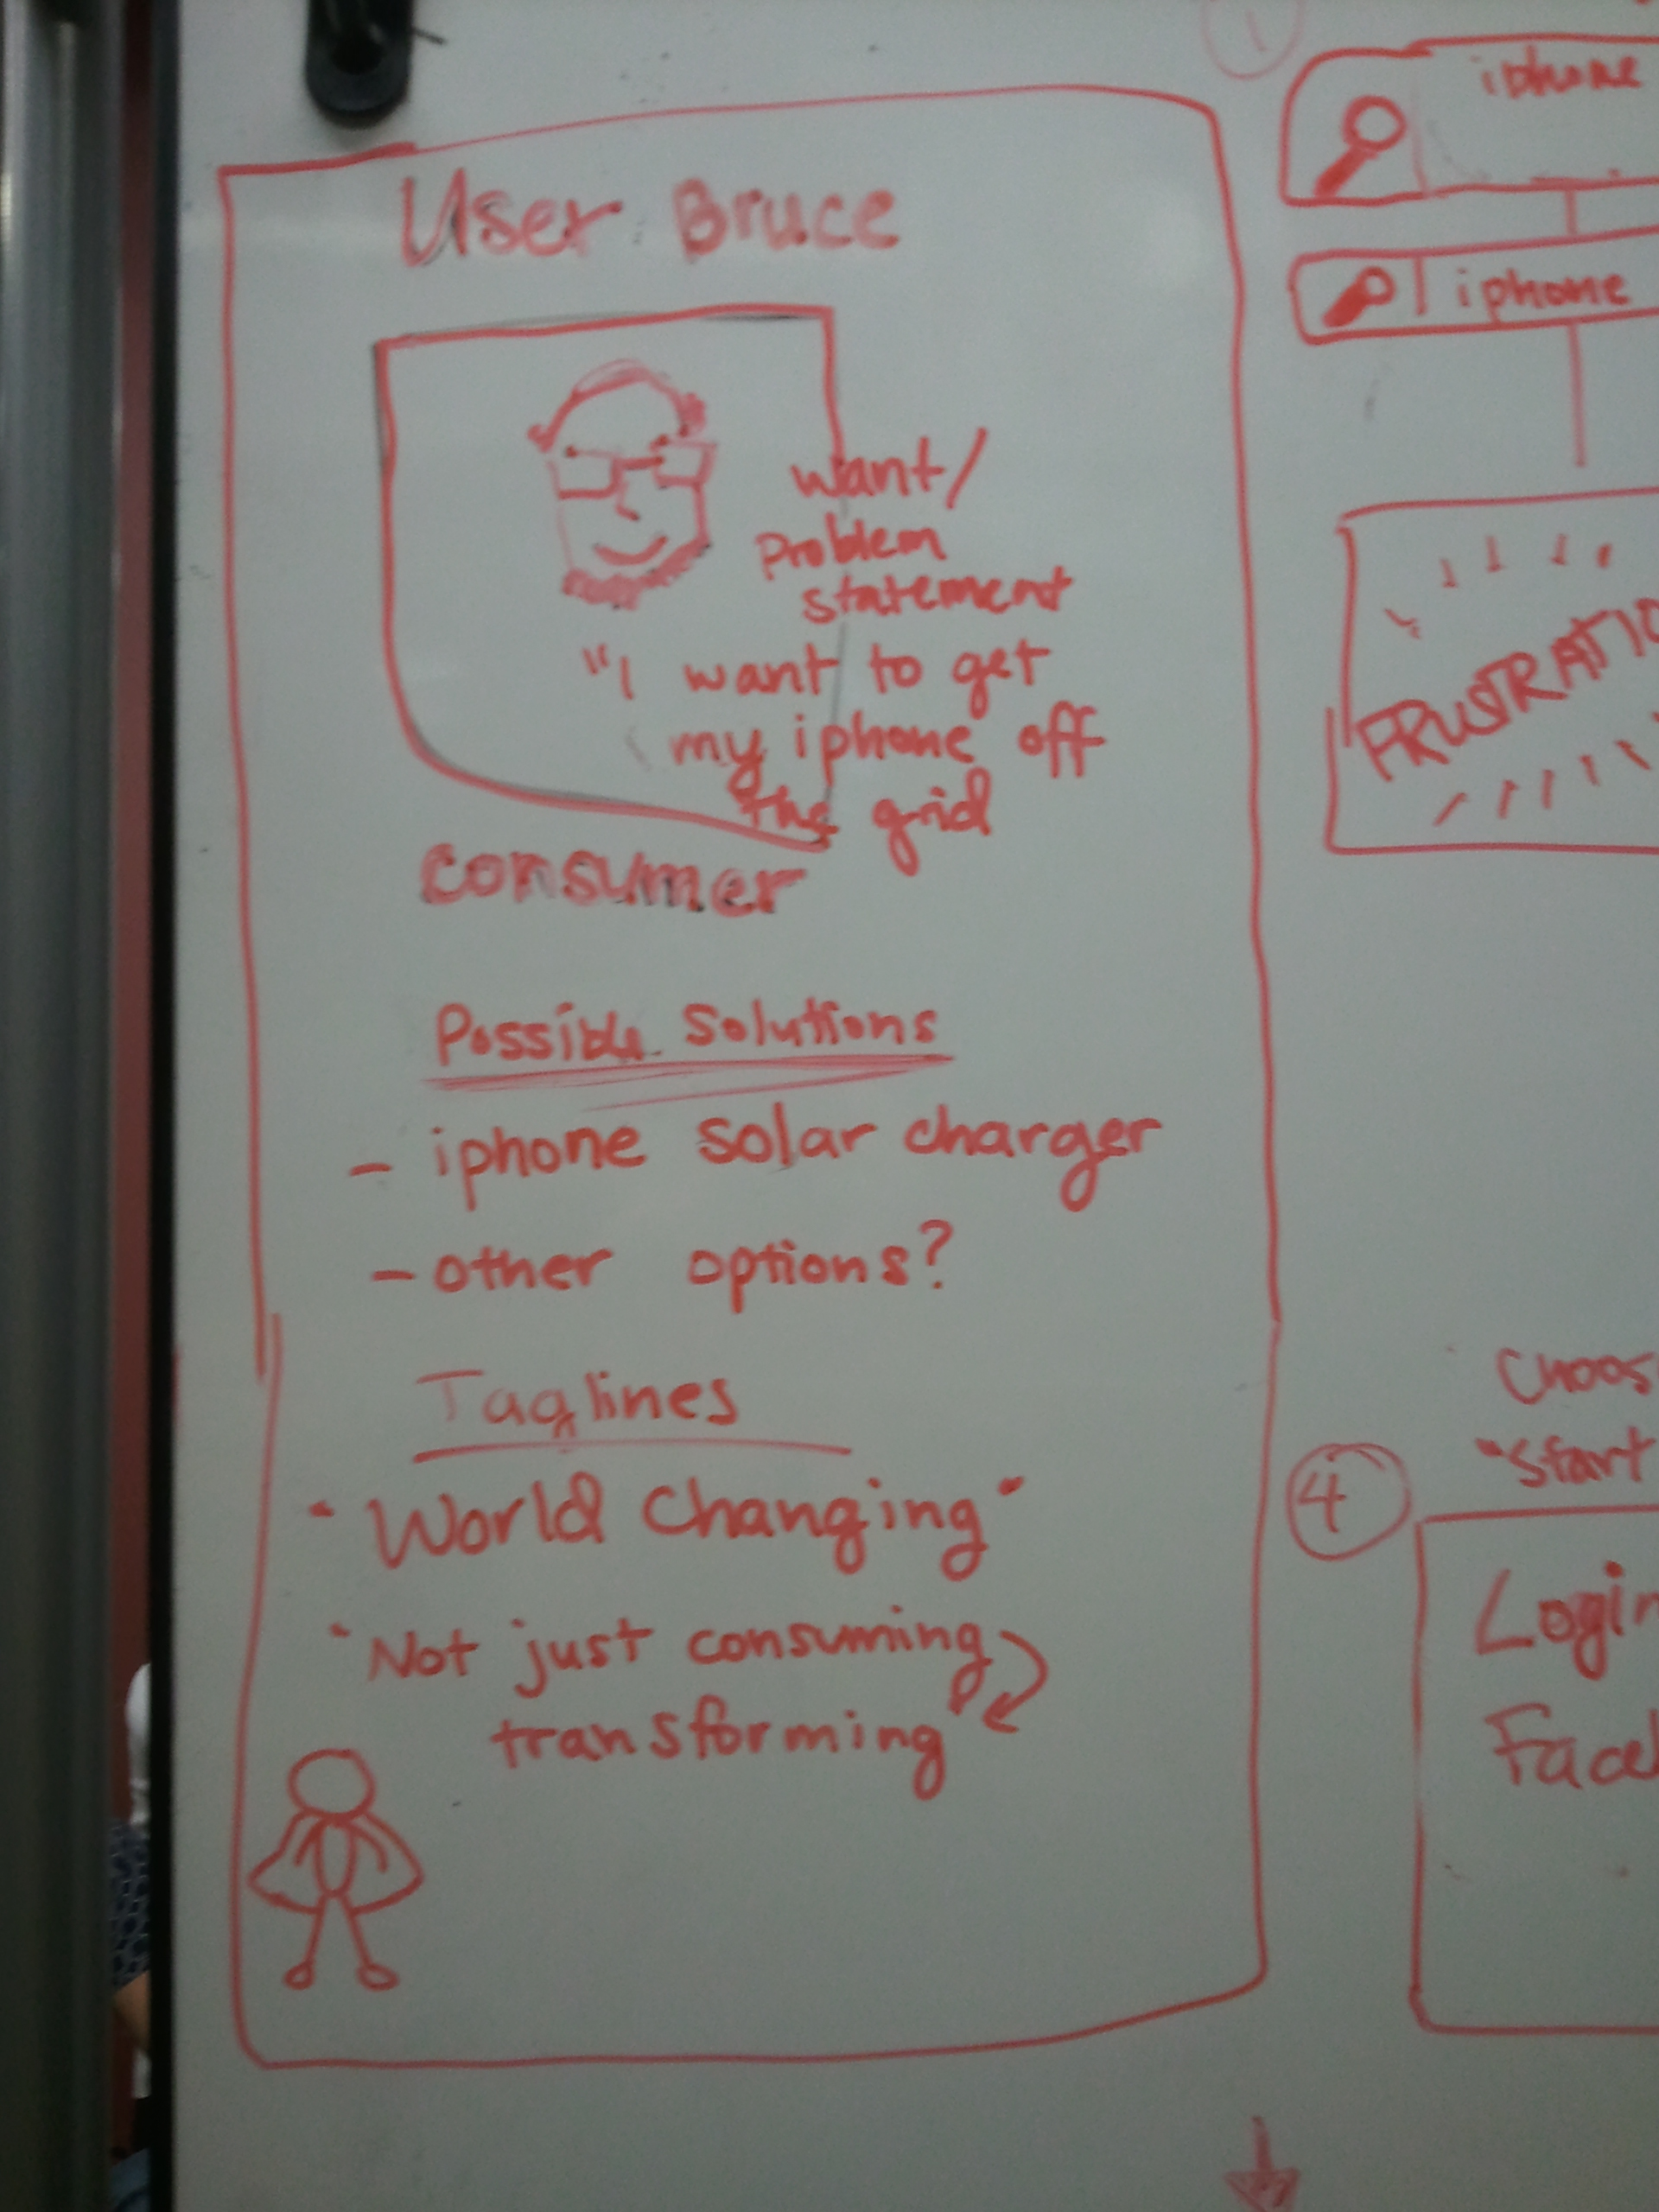 User Bruce
want/
Problem
statement
"I want to get
my iphone off
the grid
Consumer
Possible Solutions
- iphone solar charger
- other options?
Taglines
"World Changing"
"Not just consuming
transforming"
1
iphone
iphone
FRUSTRATIO
Choos
"Start
4
Login
Face